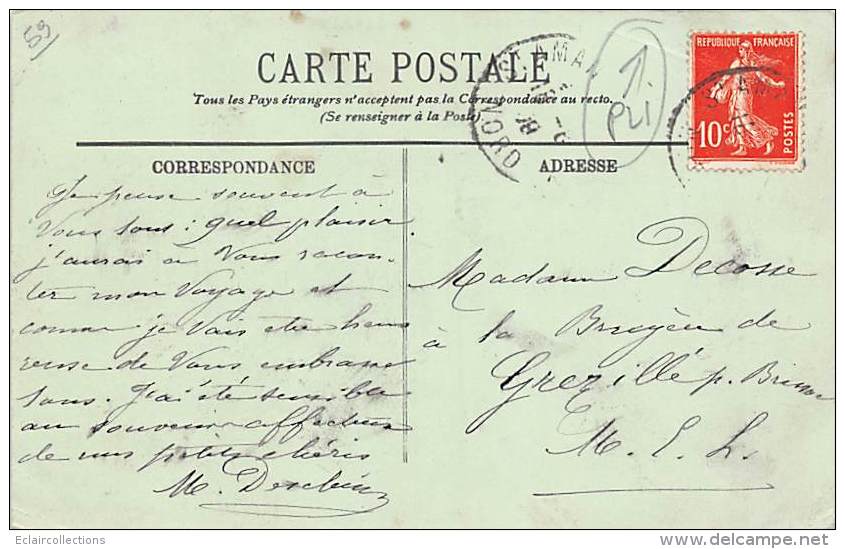 59
CARTE POSTALE
Tous les Pays étrangers n'acceptent pas la Correspondance au recto.
(Se renseigner à la Poste).
↑.
PLI
NORD
RÉPUBLIQUE FRANÇAISE
10c
POSTES
CORRESPONDANCE
Je pense souvent à
Vous tous : quel plaisir
j'aurais à Vous racon-
ter mon Voyage et
comme je Vais être heu
reuse de Vous embrasser
tous. J'ai été sensible
au souvenir affectueux
de mes petits chéris
M.
ADRESSE
Madame Decosse
à la Bruyère de
Grezillé p. Brissac
M. E. L.
Eclaircollections
www.delcampe.net